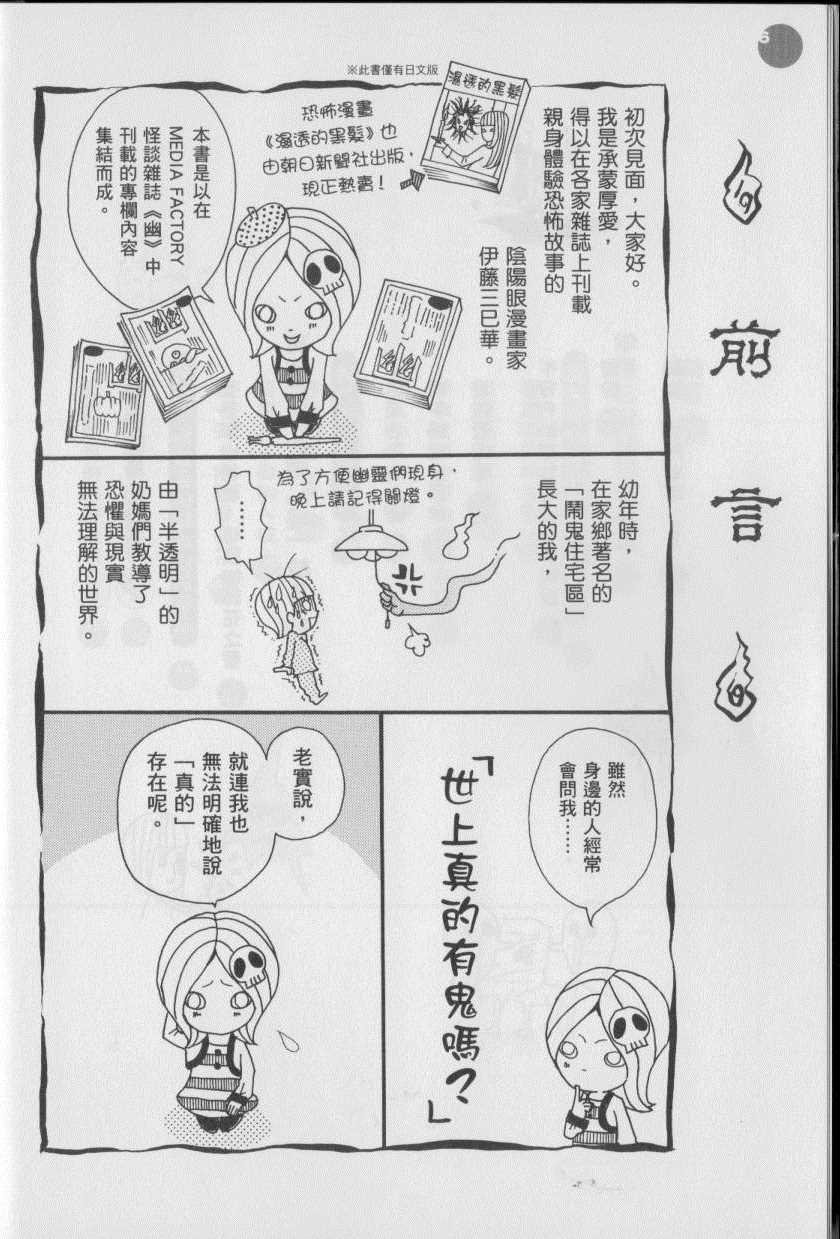 6
前言
初次見面，大家好。
我是承蒙厚愛，
得以在各家雜誌上刊載
親身體驗恐怖故事的
陰陽眼漫畫家
伊藤三巳華。
※此書僅有日文版
濕透的黑髮
恐怖漫畫
《濕透的黑髮》也
由朝日新聞社出版，
現正熱賣！
本書是以在
MEDIA FACTORY
怪談雜誌《幽》中
刊載的專欄內容
集結而成。
幽
幽
幽
幼年時，
在家鄉著名的
「鬧鬼住宅區」
長大的我，
為了方便幽靈們現身，
晚上請記得關燈。
……
由「半透明」的
奶媽們教導了
恐懼與現實
無法理解的世界。
雖然
身邊的人經常
會問我……
「世上真的有鬼嗎？」
老實說，
就連我也
無法明確地說
「真的」
存在呢。